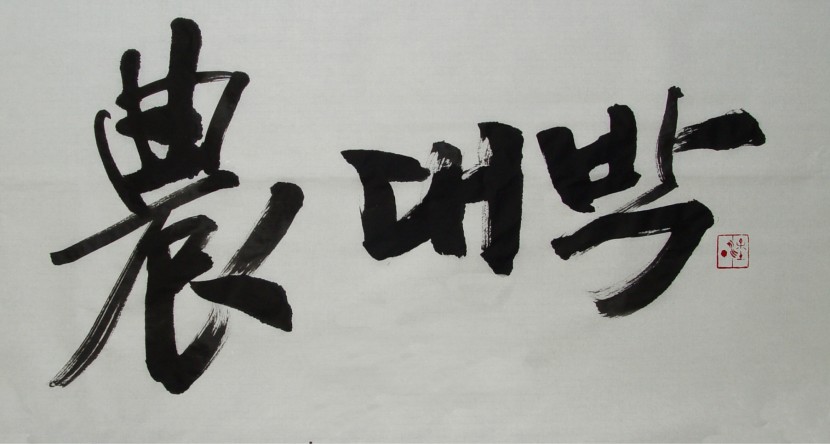 農대박